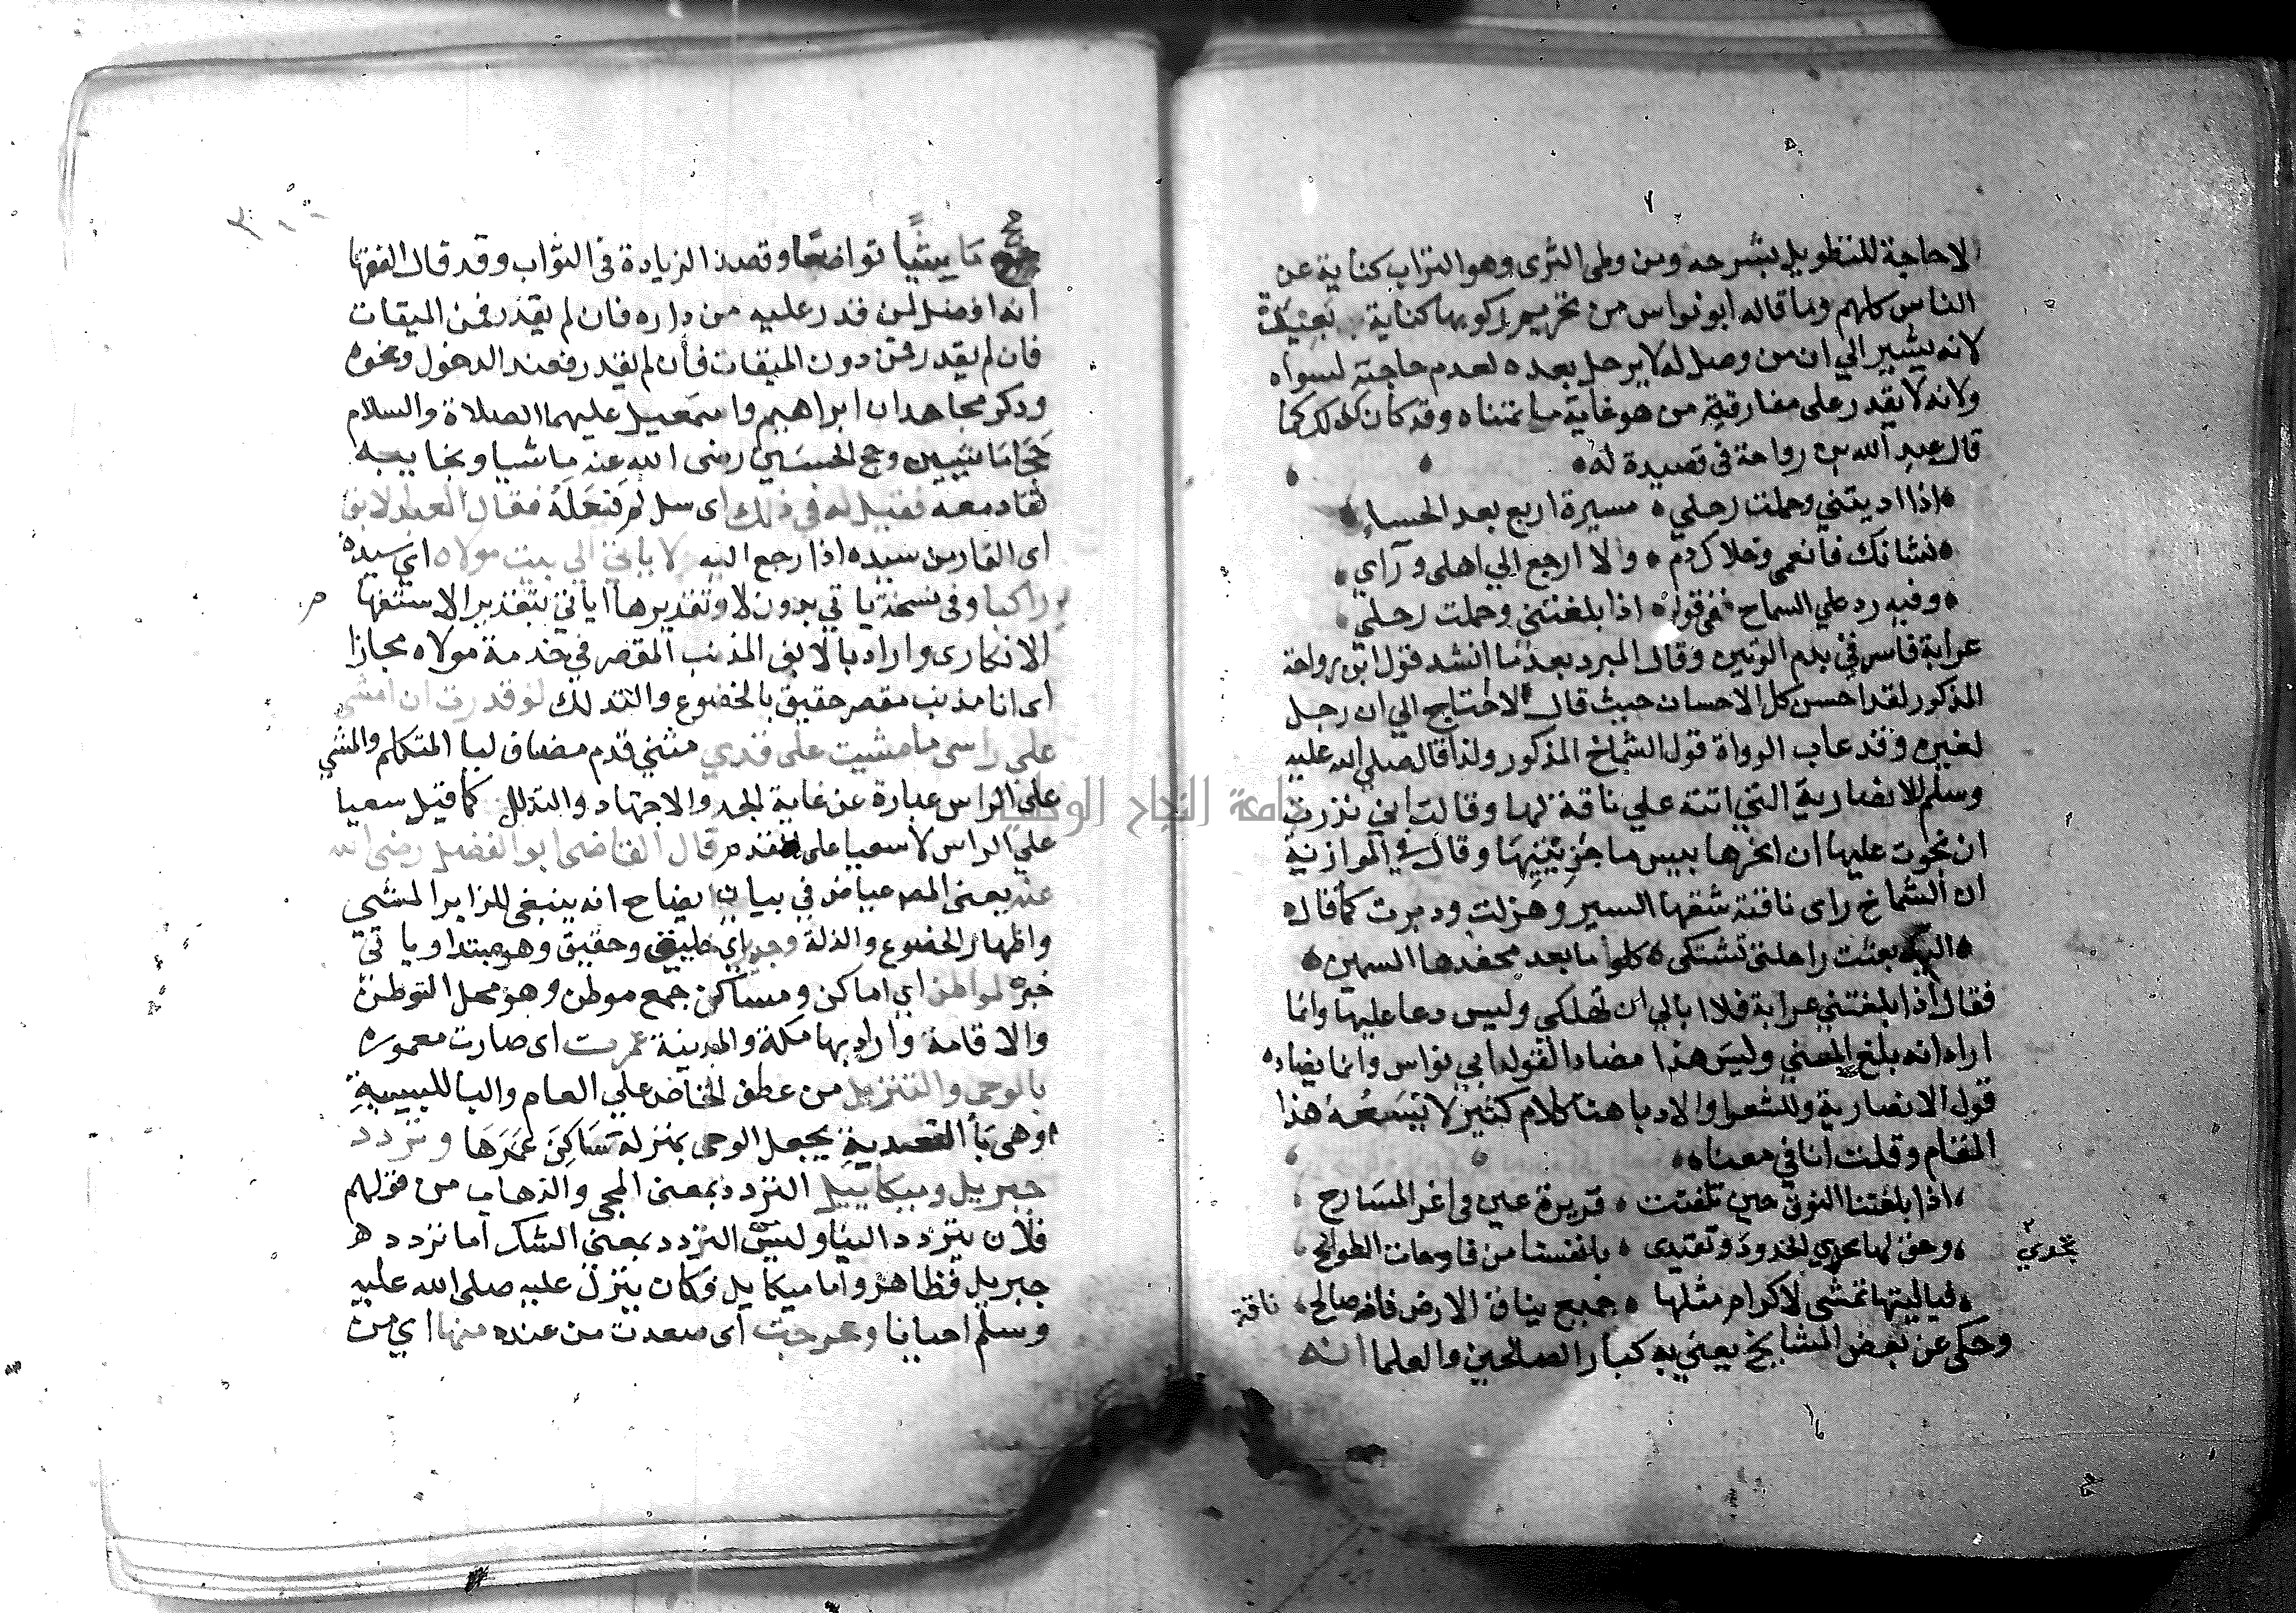 لا حاجة للتطويل بشرحه ومن وطى الثرى وهو التراب كناية عن
الناس كلهم وما قاله ابو نواس من تحريم ركوبها كناية
لانه يشير الي ان من وصل له لا يرحل بعده لعدم حاجته لسواه
ولانه لا يقدر على مفارقة من هو غاية ما تمناه وقد كان كذلك كما
قال عبد الله بن رواحة في قصيدة له
اذا اديتني وحملت رحلي مسيرة اربع بعد الحساء
فشانك فانعمى وخلاك ذم ولا ارجع الي اهلى ورآي
وفيه رد علي الشماخ في قوله اذا بلغتني وحملت رحلي
عرابة فاسرقي بدم الوتين وقال المبرد بعد ما انشد قول ابن رواحة
المذكور لقد احسن كل الاحسان حيث قال لا احتاج الي ان رحل
لغيره وقد عاب الرواة قول الشماخ المذكور ولذا قال صلى الله عليه
وسلم للانصارية التي اتته علي ناقة لها وقالت اني نذرت
ان نجوت عليها ان انحرها بيس ما جزيتيها وقال في الموازنة
ان الشماخ راى ناقته شقها السير وهزلت ودبرت كما قال
اليك بعثت راحلتي تشتكى كلوما بعد محفدها السمين
فقال اذا بلغتني عرابة فلا ابالي ان تهلكي وليس دعا عليها وانما
اراد انه بلغ المعني وليس هذا مضادا لقول ابي نواس وانما يضاده
قول الانصارية وللشعرا والادبا هنا كلام كثير لا يسعه هذا
المقام وقلت انا في معناه
اذا بلغتنا النوق حين تلفتت قريرة عين في اغر المسارح
وحق لها بحري الخدود وتفتدى بانفسنا من فادحات الطوائح
تحدي
فيا ليتها تمشى لاكرام مثلها جميع نياق الارض ناقة صالح
ناقة
وحكى عن بعض المشايخ يعني به كبار الصالحين والعلما انه
حج ماشيا تواضعا وقصدا لزيادة في الثواب وقد قال الفقها
انه افضل لمن قدر عليه من داره فان لم يقدر فمن الميقات
فان لم يقدر فمن دون الميقات فان لم يقدر فعند الدخول ونحوه
وذكر مجاهد ان ابراهيم واسمعيل عليهما الصلاة والسلام
حجا ماشيين وحج الحسين رضى الله عنه ماشيا ونجايبه
تقاد معه فقيل له في ذلك اى سل لم فعله فقال العبد الابق
اى الفار من سيده اذا رجع اليه لا ياتي الي بيت مولاه اي سيده
راكبا وفى نسخة ياتي بدون لا وتقديرها اياتي بتقدير الاستفها
م
الانكارى واراد بالابق المذنب المقصر في خدمة مولاه مجازا
اى انا مذنب مقصر حقيق بالخضوع والتذلل لو قدرت ان امشى
على راسى ما مشيت على قدمي مثني قدم مضاف ليا المتكلم والمشي
على الراس عبارة عن غاية الجد والاجتهاد والتذلل كما قيل سعيا
علي الراس لا سعيا على القدم قال القاضى ابو الفضل رضى الله
عنه يعنى المصـ عياض في بيان ايضاح انه ينبغى للزاير المشي
واظهار الخضوع والذلة وجدير اي خليق وحقيق وهو مبتدا وياتي
خبره لمواطن اي اماكن ومساكن جمع موطن وهو محل التوطن
والاقامة واراد بها مكة والمدينة عمرت اى صارت معموره
بالوحى والتنزيل من عطف الخاص علي العام والبا للسببية
وهى با التعدية بجعل الوحى بمنزلة ساكن عمرها وتردد
جبريل وميكاييل التردد بمعنى المجى والذهاب من قولهم
فلان يتردد الينا وليس التردد بمعنى الشك اما تردد
جبريل فظاهر واما ميكاييل فكان ينزل عليه صلى الله عليه
وسلم احيانا وعرجت اى صعدت من عنده منها اي من
جامعة النجاح الوطنية